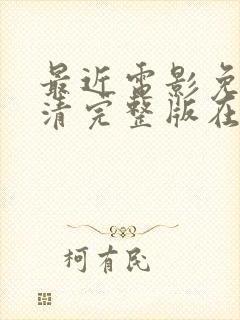 最近雷影免
清完整版在
柯有民